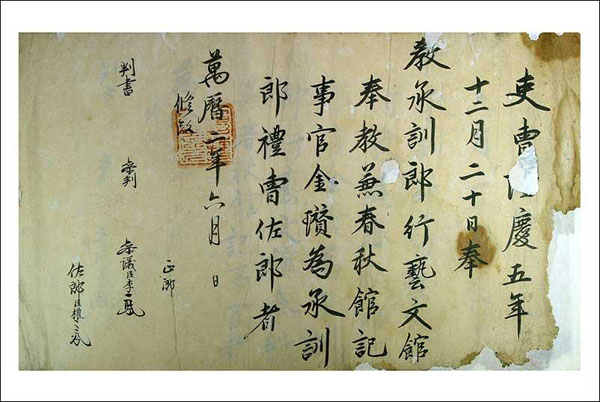 吏曹隆慶五年
十二月二十日奉
教承訓郎行藝文館
奉教兼春秋館記
事官金瓚為承訓
郎禮曹佐郎者
萬曆二年六月 日
修改
判書 參判 參議臣李
正郎
佐郎臣權